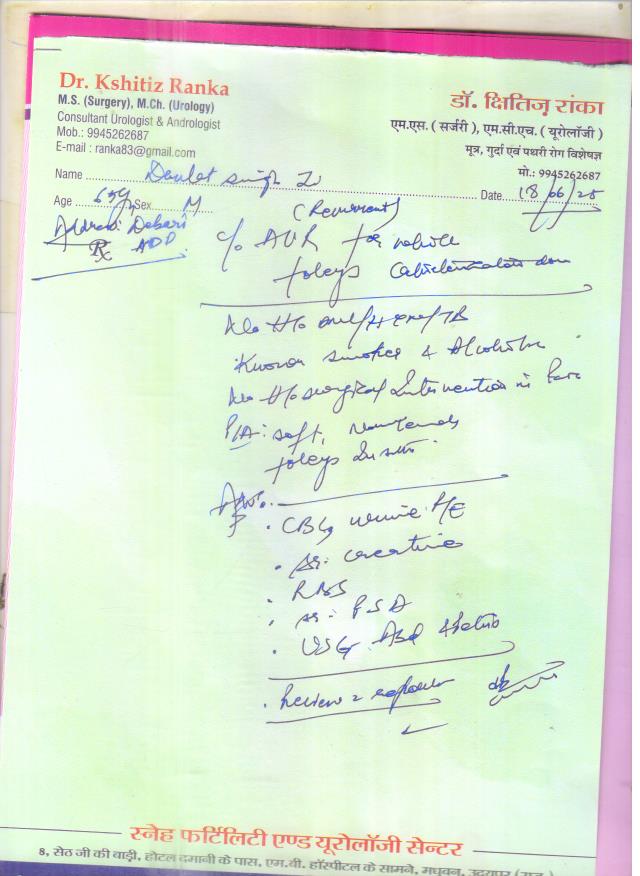 Dr. Kshitiz Ranka
M.S. (Surgery), M.Ch. (Urology)
Consultant Urologist & Andrologist
Mob.: 9945262687
E-mail : ranka83@gmail.com
डॉ. क्षितिज़ रांका
एम.एस. ( सर्जरी ), एम.सी.एच. ( यूरोलॉजी )
मूत्र, गुर्दा एवं पथरी रोग विशेषज्ञ
मो.: 9945262687
Name Daulat Singh Ji
Date 18/06/25
Age 65y Sex M
Address: Debari
Rx
(Recurrent)
c/o AUR for which
foleys Catheterization done
No H/o
Known smoker & Alcoholic
No H/o surgical Intervention in Past
P/A: soft, Nontender
foleys In situ
Adv.
• CBC, urine R/E
• Sr. creatinine
• RBS
• Sr. PSA
• USG Abd & Pelvis
• Review c reports
स्नेह फर्टिलिटी एण्ड यूरोलॉजी सेन्टर
8, सेठ जी की बाड़ी, होटल दमानी के पास, एम.बी. हॉस्पीटल के सामने, मधुवन, उदयपुर (राज.)